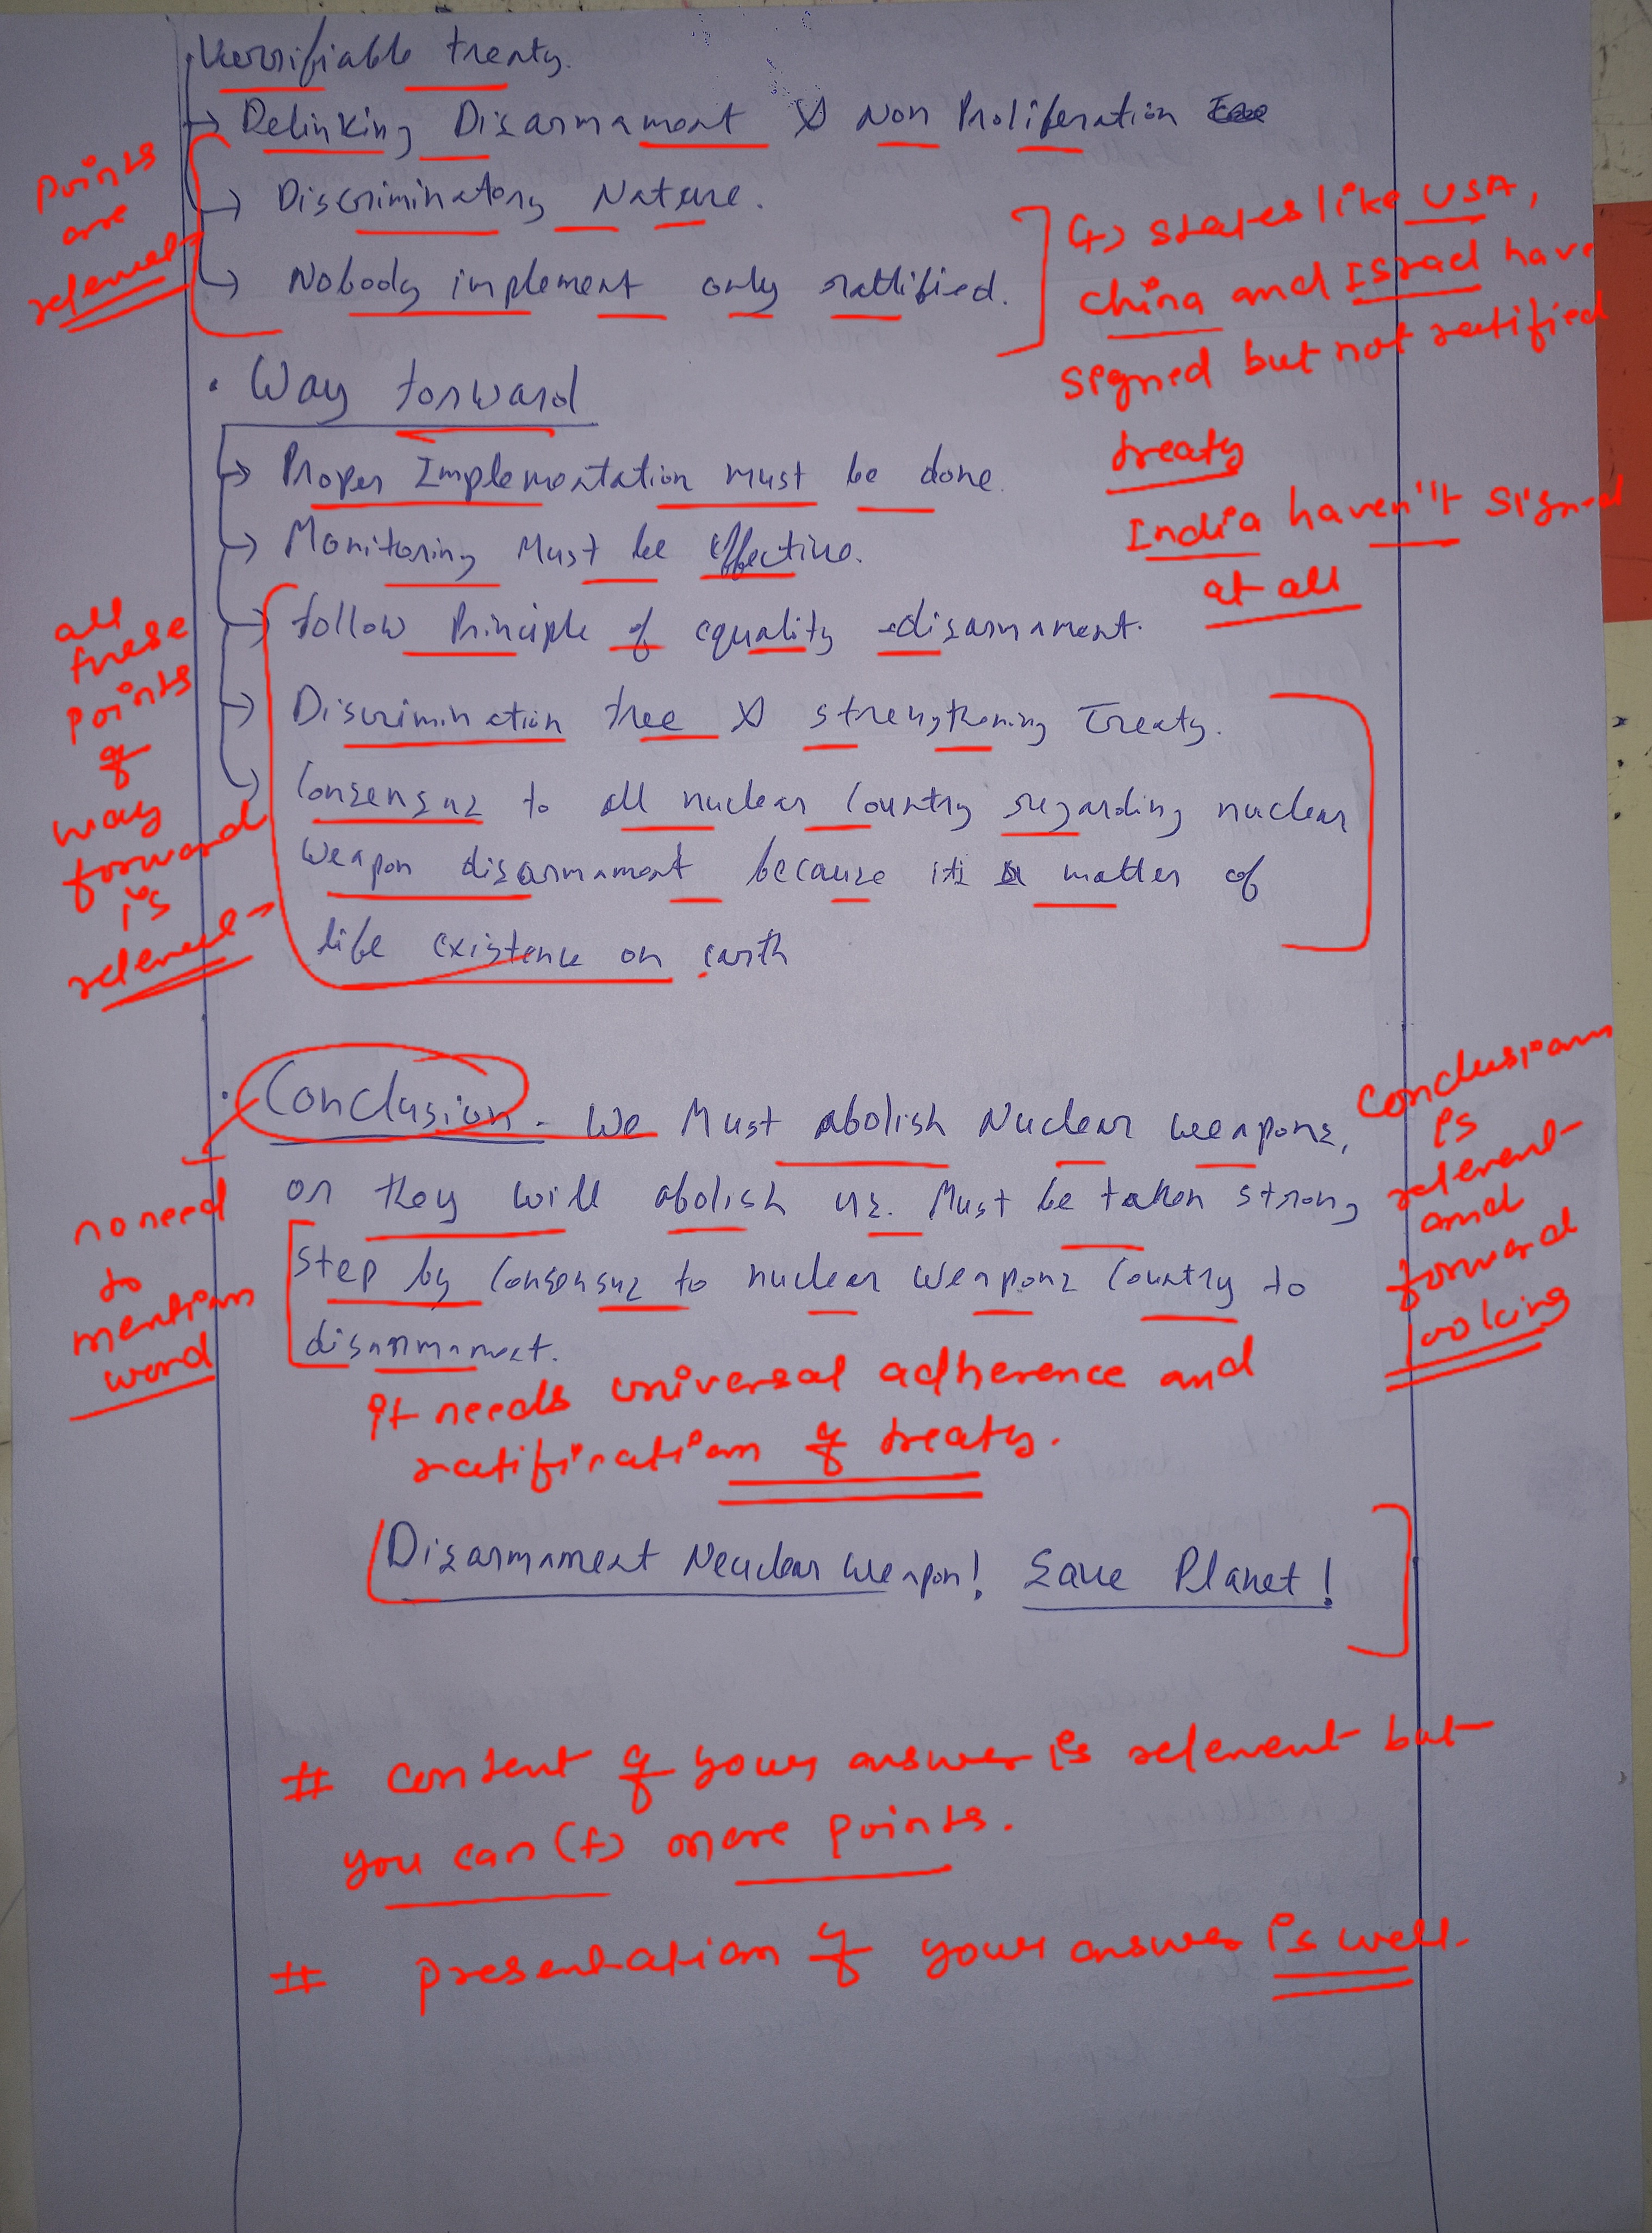 Verrifiable treaty.
→ Delinking Disarmament & Non Proliferation
→ Discriminatory Nature.
→ Nobody implement only rattified.
points
are
relevent
(+) states like USA,
china and Israel have
signed but not ratified
treaty
India haven't signed
at all
• Way forward
→ Proper Implementation must be done.
→ Monitoring Must be effective.
→ follow Principle of equality - disarmament.
→ Discrimination free & strengthening Treaty.
→ Consensus to all nuclear Country regarding nuclear
weapon disarmament because its a matter of
life existence on earth
all
these
points
of
way
forward
is
relevent
• Conclusion - We Must abolish Nuclear weapons,
or they will abolish us. Must be taken strong
step by consensus to nuclear weapons Country to
disarmament.
no need
to
mention
word
conclusion
is
relevent
and
forward
looking
it needs universal adherence and
ratification of treaty.
Disarmament Neuclear weapon! Save Planet!
# content of your answer is relevent but
you can (+) more points.
# presentation of your answer is well.